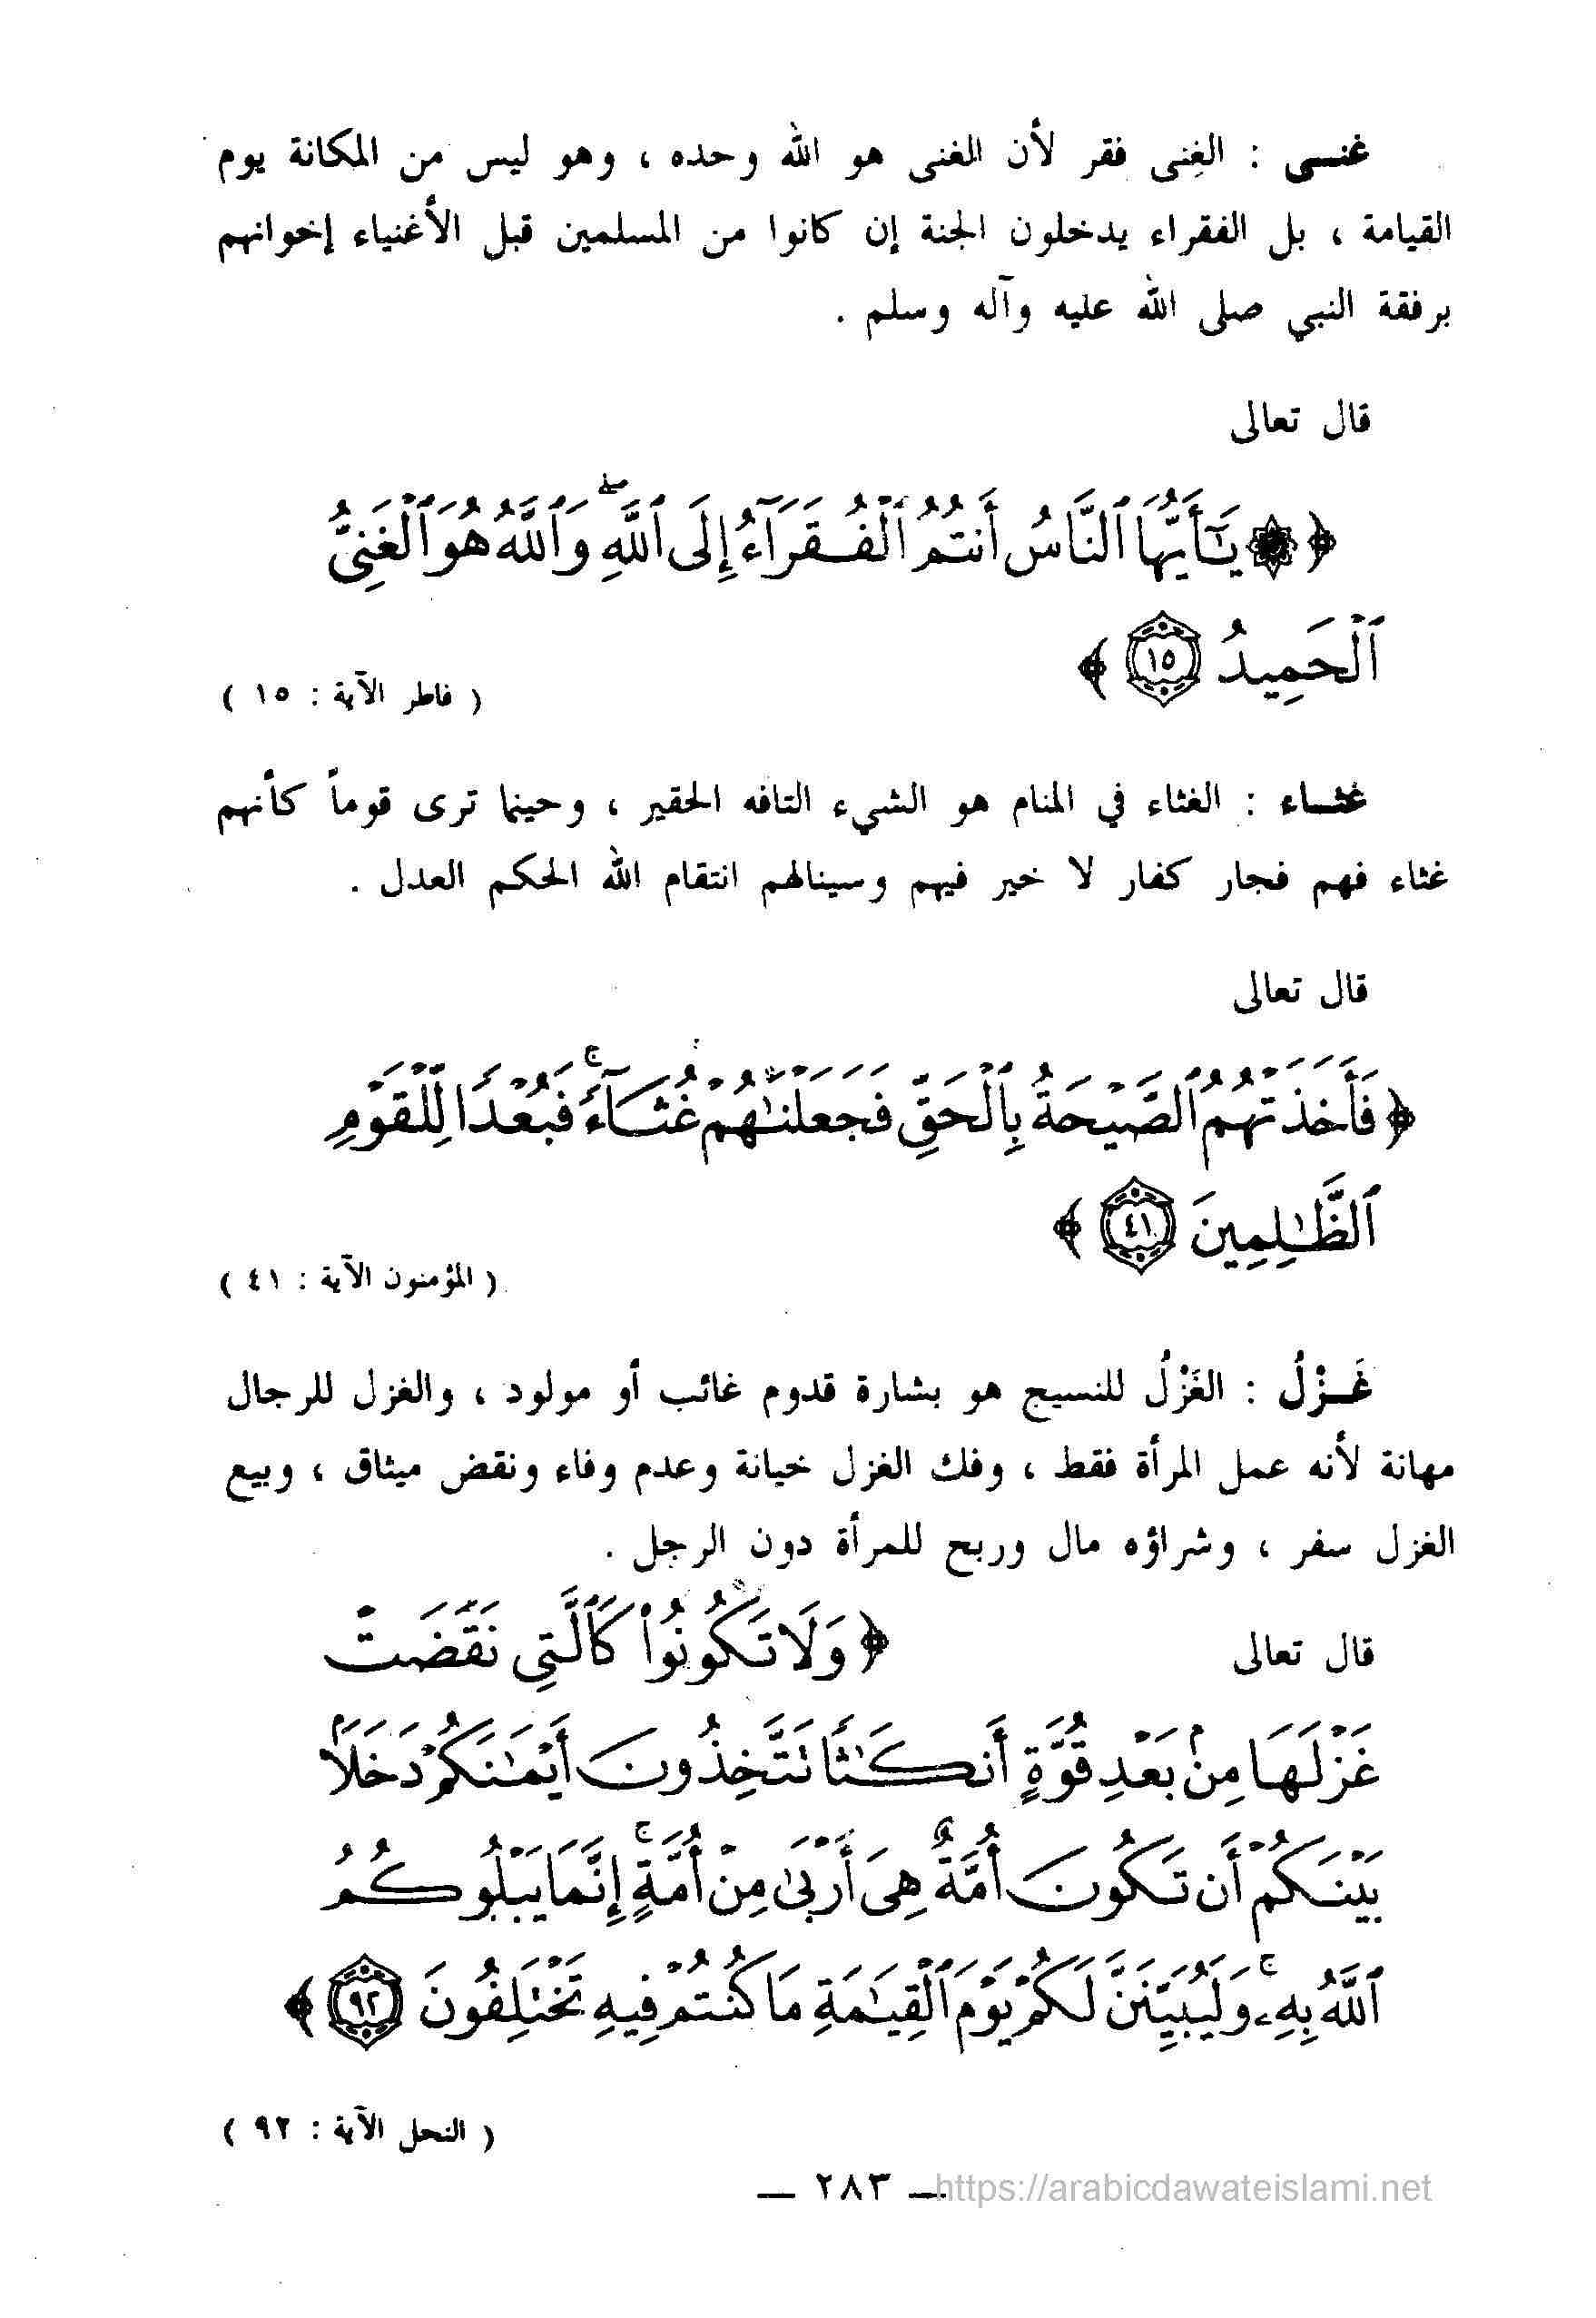 غنــى : الغِنى فقر لأن الغنى هو الله وحده ، وهو ليس من المكانة يوم
القيامة ، بل الفقراء يدخلون الجنة إن كانوا من المسلمين قبل الأغنياء إخوانهم
برفقة النبي صلى الله عليه وآله وسلم .
قال تعالى
﴿ ۞ يَـٰٓأَيُّهَا ٱلنَّاسُ أَنتُمُ ٱلْفُقَرَآءُ إِلَى ٱللَّهِ ۖ وَٱللَّهُ هُوَ ٱلْغَنِىُّ
ٱلْحَمِيدُ ١٥ ﴾
( فاطر الآية : ١٥ )
غثــاء : الغثاء في المنام هو الشيء التافه الحقير ، وحينما ترى قوماً كأنهم
غثاء فهم فجار كفار لا خير فيهم وسينالهم انتقام الله الحكم العدل .
قال تعالى
﴿ فَأَخَذَتْهُمُ ٱلصَّيْحَةُ بِٱلْحَقِّ فَجَعَلْنَـٰهُمْ غُثَآءً ۚ فَبُعْدًا لِّلْقَوْمِ
ٱلظَّـٰلِمِينَ ٤١ ﴾
( المؤمنون الآية : ٤١ )
غَــزْلُ : الغَزْلُ للنسيج هو بشارة قدوم غائب أو مولود ، والغزل للرجال
مهانة لأنه عمل المرأة فقط ، وفك الغزل خيانة وعدم وفاء ونقض ميثاق ، وبيع
الغزل سفر ، وشراؤه مال وربح للمرأة دون الرجل .
قال تعالى ﴿ وَلَا تَكُونُوا۟ كَٱلَّتِى نَقَضَتْ
غَزْلَهَا مِنۢ بَعْدِ قُوَّةٍ أَنكَـٰثًا تَتَّخِذُونَ أَيْمَـٰنَكُمْ دَخَلًۢا
بَيْنَكُمْ أَن تَكُونَ أُمَّةٌ هِىَ أَرْبَىٰ مِنْ أُمَّةٍ ۚ إِنَّمَا يَبْلُوكُمُ
ٱللَّهُ بِهِۦ ۚ وَلَيُبَيِّنَنَّ لَكُمْ يَوْمَ ٱلْقِيَـٰمَةِ مَا كُنتُمْ فِيهِ تَخْتَلِفُونَ ٩٢ ﴾
( النحل الآية : ٩٢ )
— ٢٨٣ —
https://arabicdawateislami.net